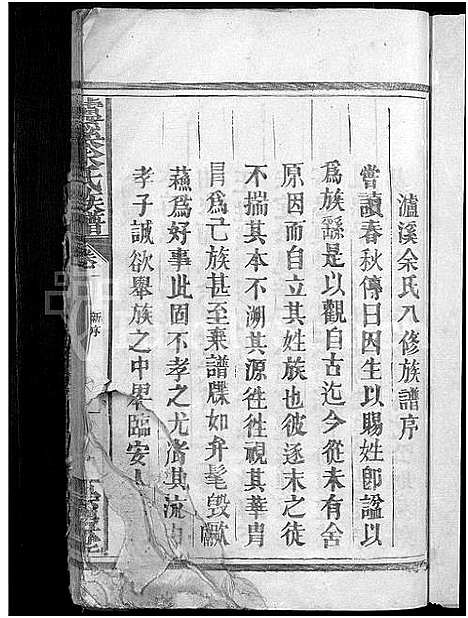 瀘溪余氏八修族譜序
嘗讀春秋傳曰因生以賜姓卽諡以
爲族繇是以觀自古迄今從未有舍
原因而自立其姓族也彼逐末之徒
不揣其本不溯其源徃徃視其華胄
冐爲己族甚至棄譜牒如弁髦毀厥
蘓爲好事此固不孝之尤者其流
孝子誠欲舉族之中畢臨安
余氏族譜
卷
新序